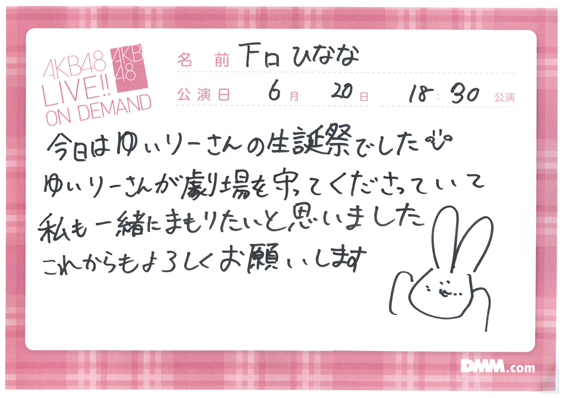 AKB48
LIVE!!
ON DEMAND
AKB
48
名前 下口ひなな
公演日 6月 20日 18:30 公演
今日はゆいりーさんの生誕祭でした
ゆいりーさんが劇場を守ってくださっていて
私も一緒にまもりたいと思いました
これからもよろしくお願いします
DMM.com